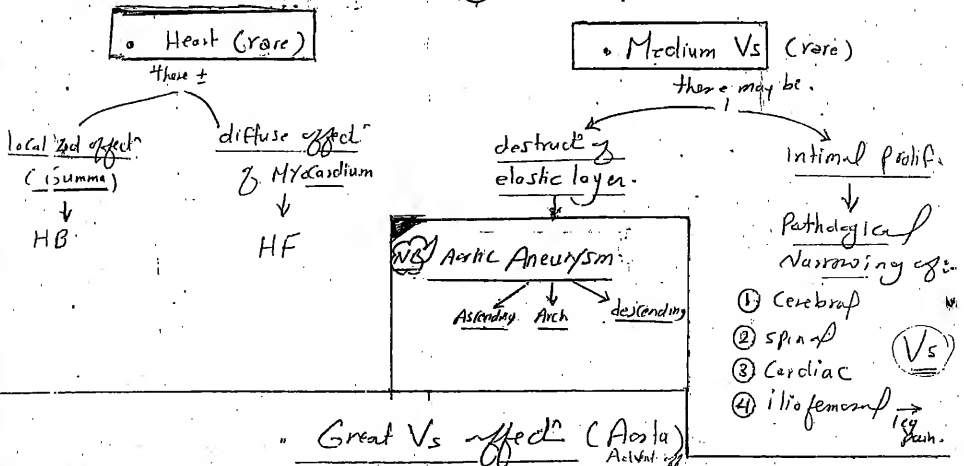 • Heart (rare)
there ±
local'zed affectⁿ
(Gumma)
↓
HB.
diffuse affectⁿ
of MYocardium
↓
HF
• Medium Vs (rare)
there may be.
destructⁿ of
elastic layer.
NB Aortic Aneurysm
Ascending Arch descending
Intimal prolif.
↓
Pathological
Narrowing of:-
① Cerebral
② spinal
③ Cardiac
④ iliofemoral → leg pain.
Vs
• Great Vs affectⁿ (Aorta)